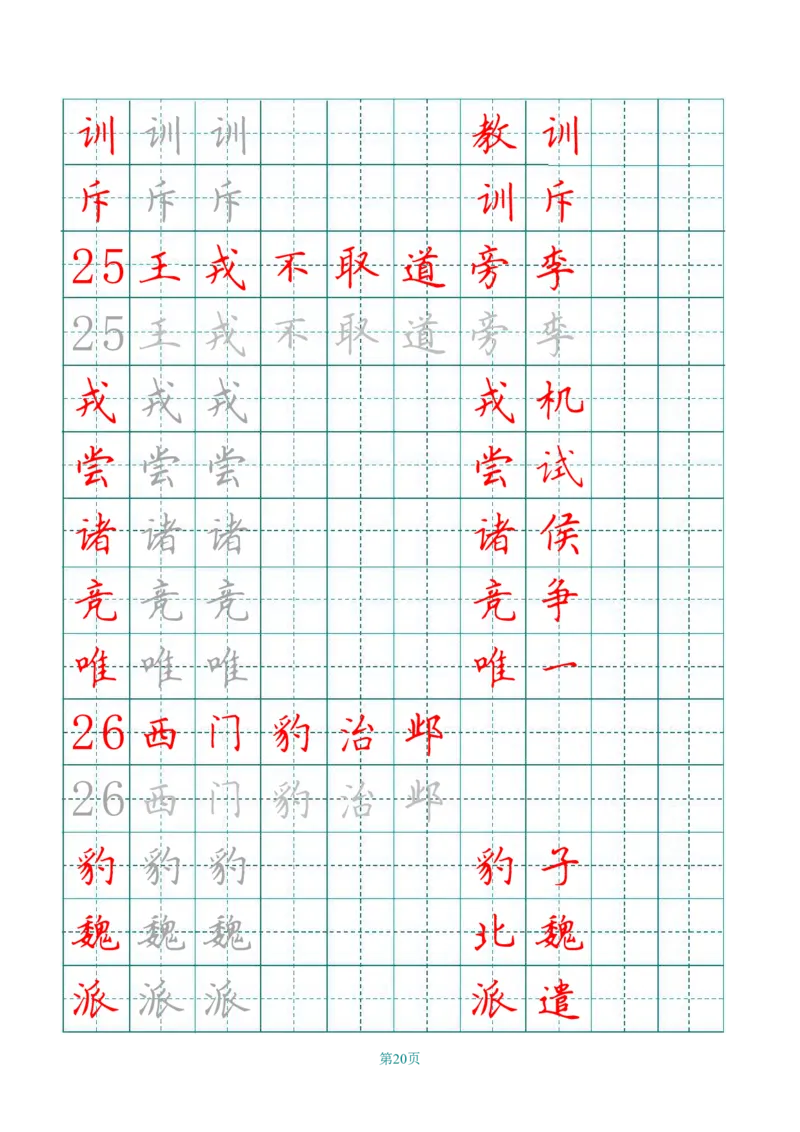 训 训 训 教 训
斥 斥 斥 训 斥
25 王 戎 不 取 道 旁 李
25 王 戎 不 取 道 旁 李
戎 戎 戎 戎 机
尝 尝 尝 尝 试
诸 诸 诸 诸 侯
竞 竞 竞 竞 争
唯 唯 唯 唯 一
26 西 门 豹 治 邺
26 西 门 豹 治 邺
豹 豹 豹 豹 子
魏 魏 魏 北 魏
派 派 派 派 遣
第20页